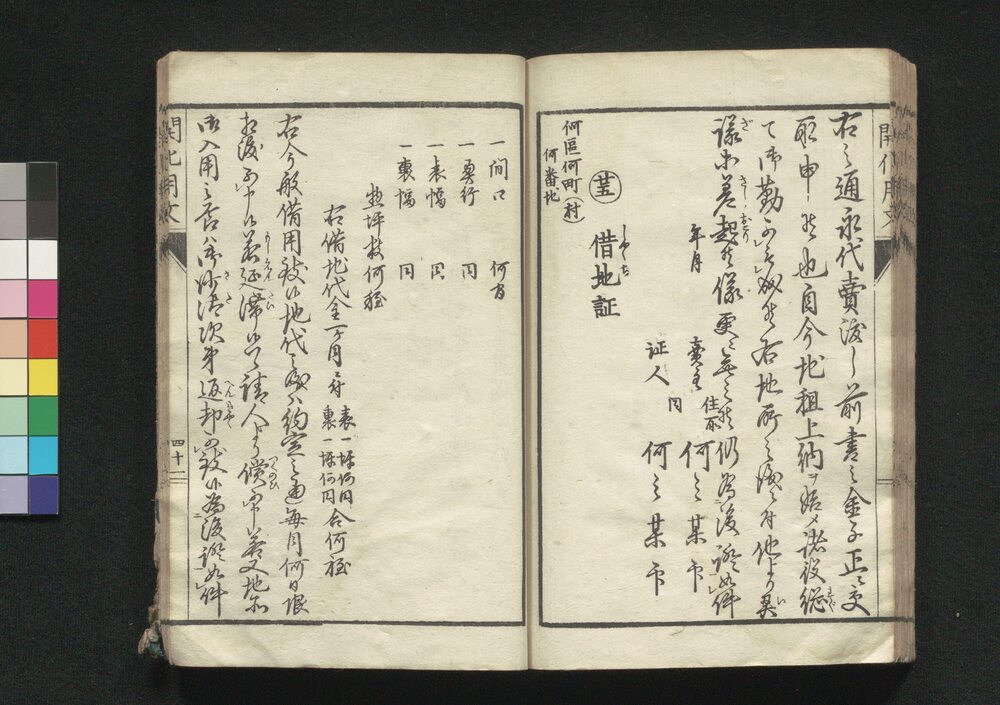 右之通永代賣渡し前書之金子正ニ受
取申所也自今地租上納ヲ始メ諸役総
て御勤可被成右地所之儀ニ付他より異
議等差起候儀更ニ無之候仍為後證如件
年月
賣主
住所
何之某印
証人
同
何之某印
何區何町(村)
何番地
借地証
一間口 何間
一奥行 同
一表幅 同
一裏幅 同
惣坪数何程
右借地代金一ヶ月ニ付
表一坪何円
裏一坪何円
合何程
右今般借用致候地代之儀ハ約定之通毎月何日限
相渡可申候若延滞候ハヾ請人より償可申若又地所
御入用之節ハ御沙汰次第返却可致候為後證如件
開化用文
四十一